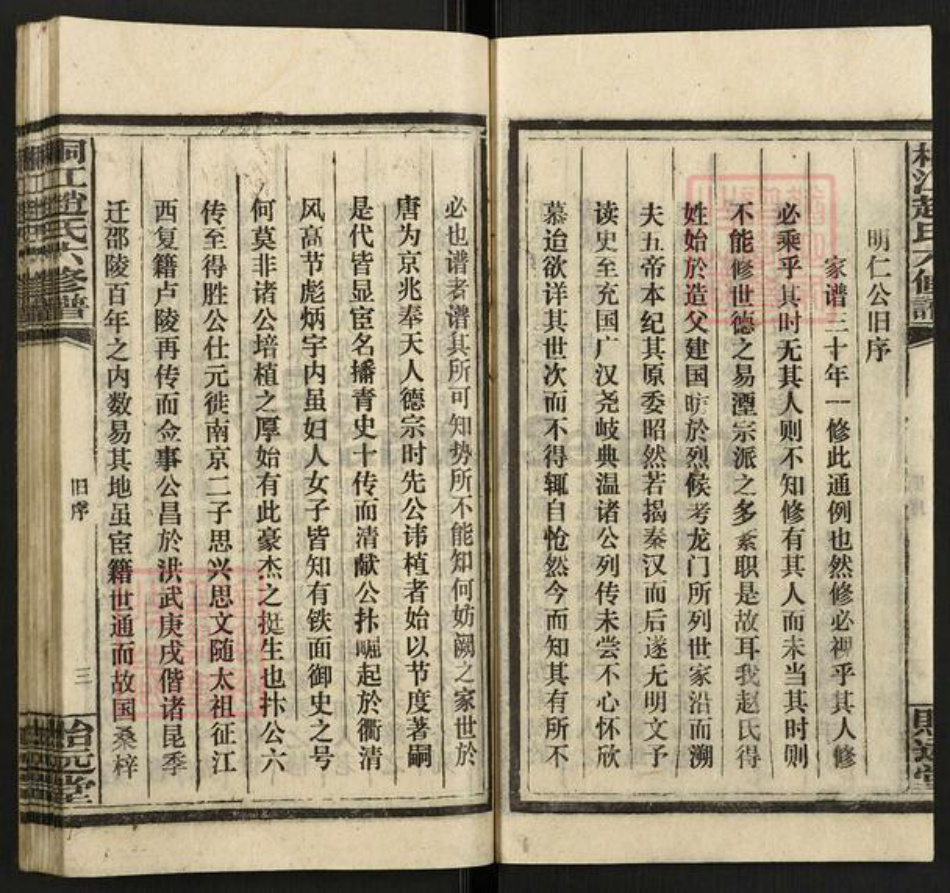 明仁公旧序
家谱三十年一修此通例也然修必视乎其人修
必乘乎其时无其人则不知修有其人而未当其时则
不能修世德之易湮宗派之多紊职是故耳我赵氏得
姓始於造父建国昉於烈候考龙门所列世家沿而溯
夫五帝本纪其原委昭然若揭秦汉而后遂无明文予
读史至充国广汉尧岐典温诸公列传未尝不心怀欣
慕迨欲详其世次而不得辄自怆然今而知其有所不
必也谱者谱其所可知势所不能知何妨阙之家世於
唐为京兆奉天人德宗时先公讳植者始以节度著嗣
是代皆显宦名播青史十传而清献公抃崛起於衢清
风高节彪炳宇内虽妇人女子皆知有铁面御史之号
何莫非诸公培植之厚始有此豪杰之挺生也抃公六
传至得胜公仕元徙南京二子思兴思文随太祖征江
西复籍卢陵再传而佥事公昌於洪武庚戌偕诸昆季
迁邵陵百年之内数易其地虽宦籍世通而故国桑梓
桐江趙氏六修譜
旧序
三